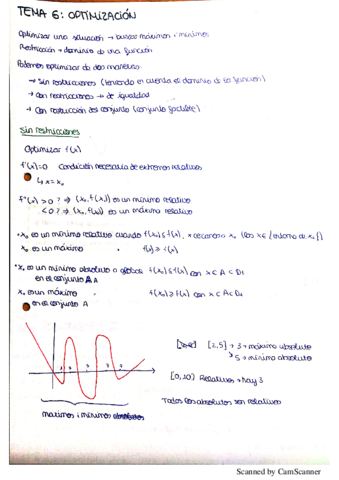 TEMA 6: OPTIMIZACIÓN
Optimizar una situación → buscar máximos i mínimos
Restricción → dominio de una función
Podemos optimizar de dos maneras:
→ Sin restricciones (teniendo en cuenta el dominio de la función)
→ Con restricciones → de igualdad
→ Con restricción del conjunto (conjunto factible)
Sin restricciones
Optimizar f(x)
f'(x)=0 Condición necesaria de extremos relativos
↳ x = x₀
f''(x) > 0 ? ⇒ (x₀, f(x)) es un mínimo relativo
< 0 ? ⇒ (x₀, f(x)) es un máximo relativo
· x₀ es un mínimo relativo cuando f(x₀) ≤ f(x), x cercano a x₀ {los x ∈ / entorno de x₀}
x₀ es un máximo " f(x₀) ≥ f(x)
· x₀ es un mínimo absoluto o global f(x₀) ≤ f(x) con x ∈ A ⊂ D
en el conjunto A
x₀ es un máximo " f(x₀) ≥ f(x) con x ∈ A ⊂ D
en el conjunto A
[2,5] → 3 → máximo absoluto
↘ 5 → mínimo absoluto
[0,10) Relativos → hay 3
Todos los absolutos son relativos
maximos i minimos absolutos
Scanned by CamScanner